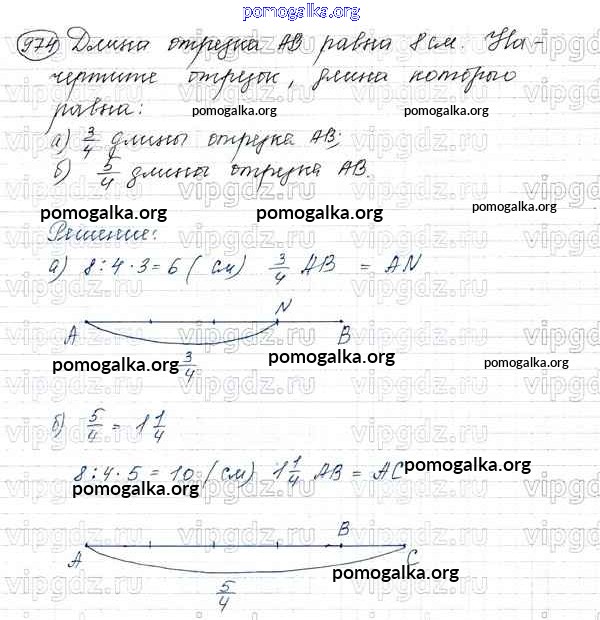 pomogalka.org
974) Длина отрезка AB равна 8 см. На-
чертите отрезок, длина которого
равна:
pomogalka.org pomogalka.org
а) 3/4 длины отрезка AB;
б) 5/4 длины отрезка AB.
pomogalka.org pomogalka.org pomogalka.org
Решение:
а) 8 : 4 · 3 = 6 ( см) 3/4 AB = AN
N
A B
pomogalka.org pomogalka.org pomogalka.org
3/4
б) 5/4 = 1 1/4
8 : 4 · 5 = 10 ( см) 1 1/4 AB = AC
pomogalka.org
pomogalka.org pomogalka.org
B
A C
pomogalka.org
5/4
vipgdz.ru